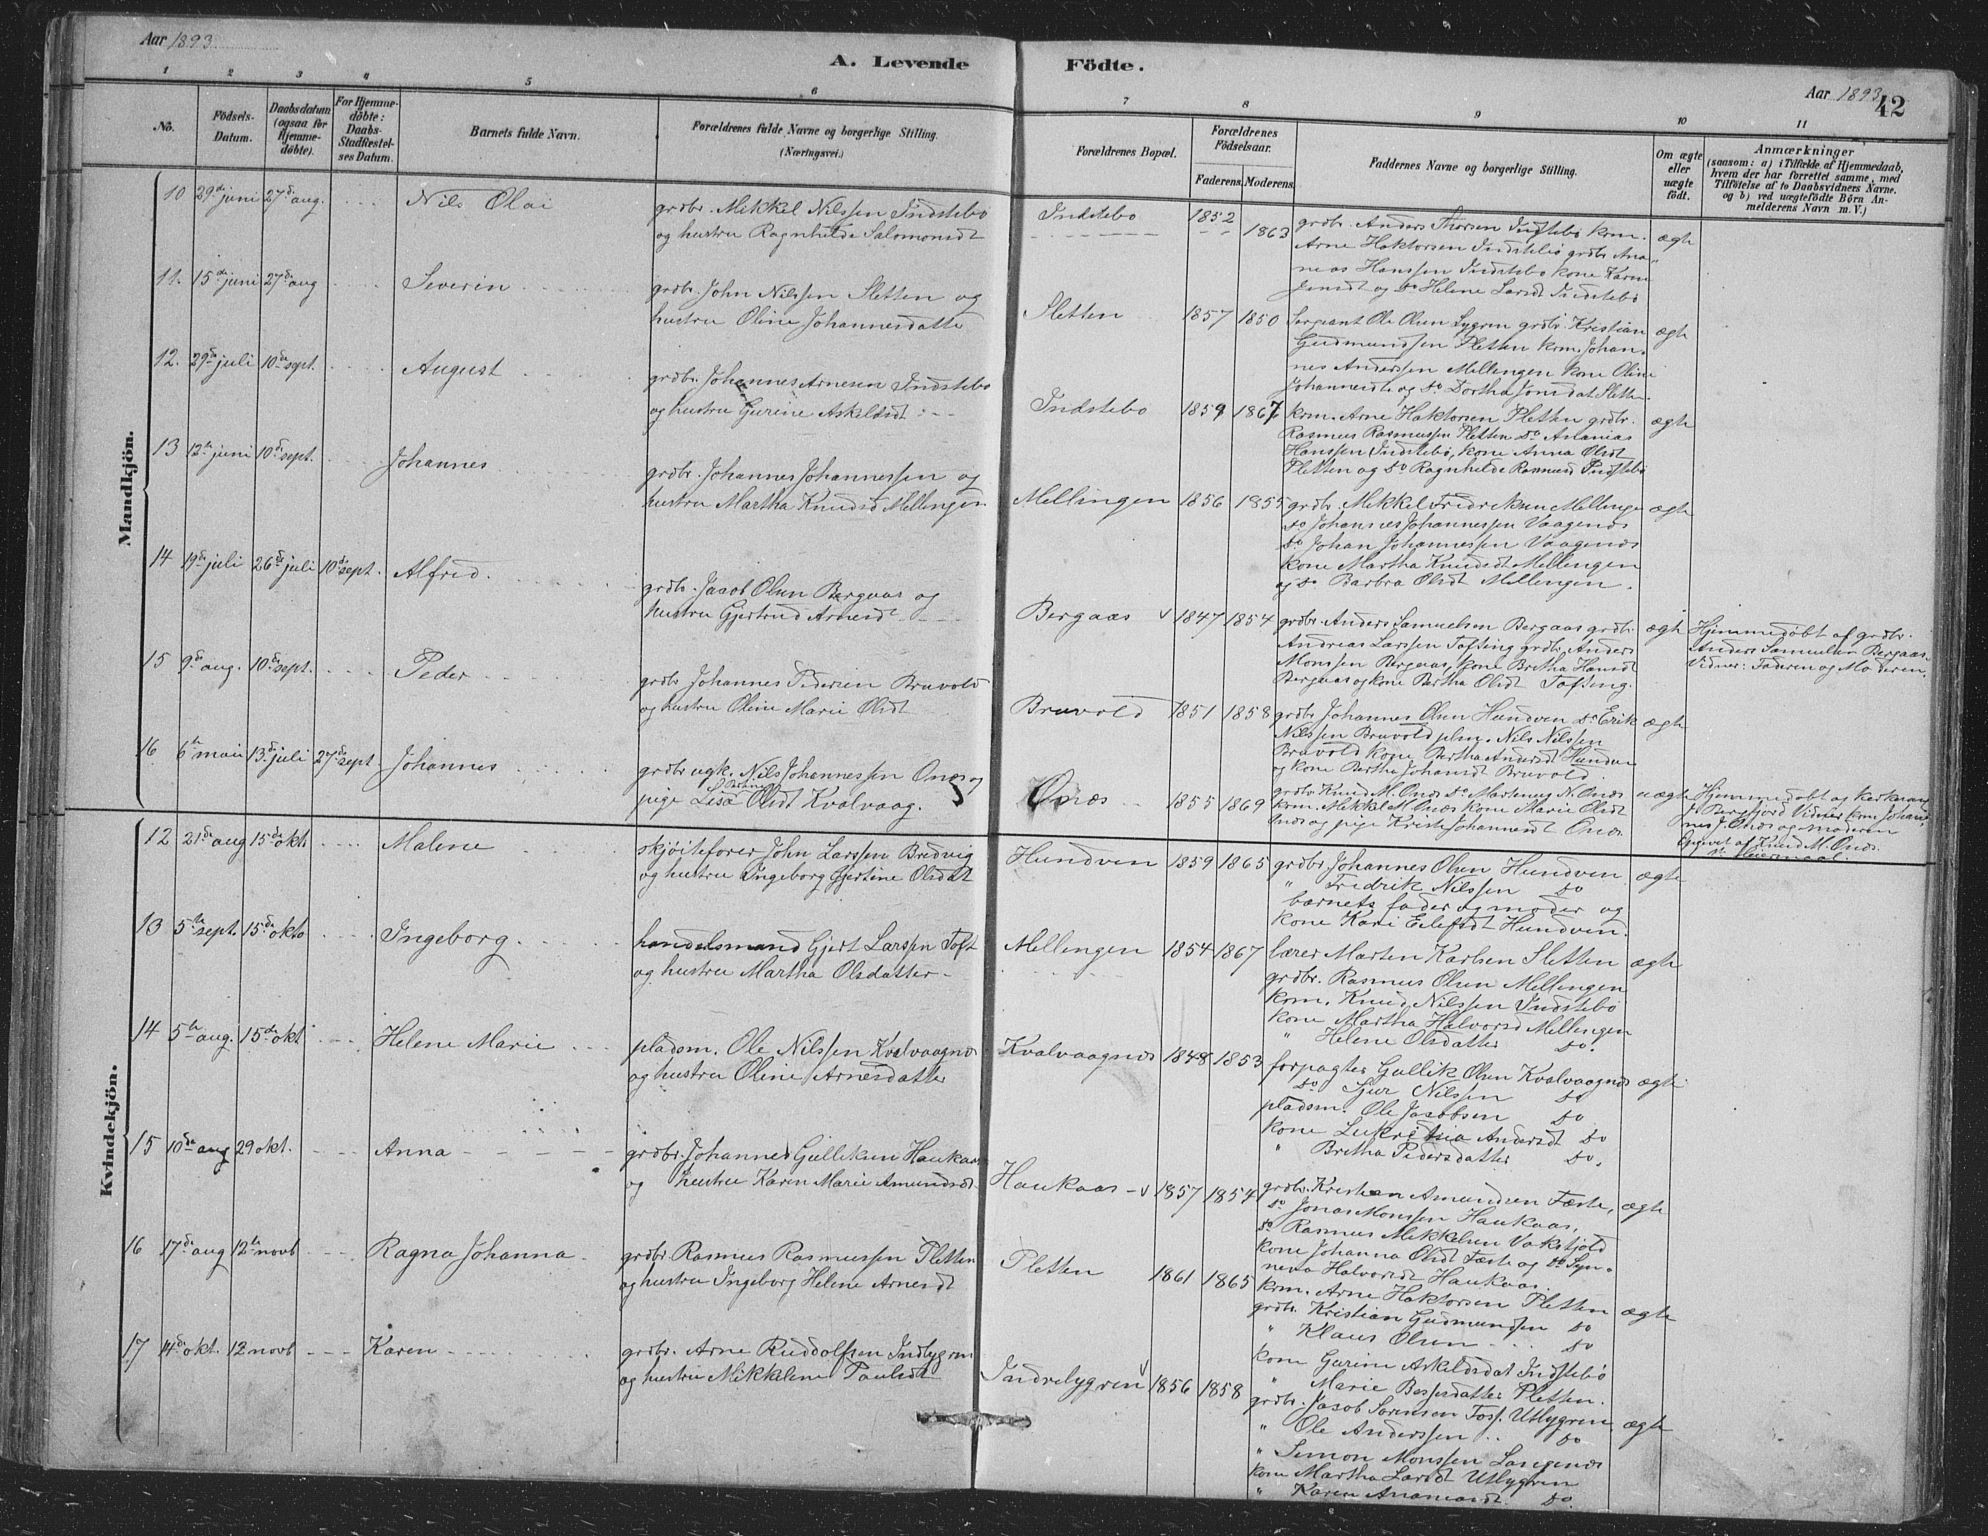 Aar 1893
A. Levende Födte.
Aar 1893
42
1 2 3 4 5 6 7 8 9 10 11
No.
Födsels-Datum.
Daabsdatum (ogsaa for Hjemme-döbte).
For Hjemme-döbte: Daabs-Stadfæstel-ses Datum.
Barnets fulde Navn.
Forældrenes fulde Navne og borgerlige Stilling. (Næringsvei.)
Forældrenes Bopæl.
Forældrenes Födselsaar.
Faderens. Moderens.
Faddernes Navne og borgerlige Stilling.
Om ægte eller uægte födt.
Anmærkninger
(saasom: a) i Tilfælde af Hjemmedaab, hvem der har forrettet samme, med Tilföielse af to Daabsvidners Navne. og b) ved uægtefödte Börn Anmelderens Navn m. V.)
Mandkjön.
10 29de juni 27de aug. Nils Olai
grdbr. Mikkel Nilssen Indstebö
og hustru Ragnhilde Salomonsdt
Indstebo 1852 1863
grdbr. Anders Thorsen Indstebö krm.
Arne Haktorsen Indstebö grdbr. Ana-
nias Hanssen Indstebö kone Karen
Jensdt og do Helene Larsdt Indstebö
ægte
11. 15de juni 27de aug Severin
grdbr. John Nilssen Sletten og
hustru Oline Johannesdatte
Sletten 1857 1850
Sergeant Ole Olsen Lygren grdbr. Kristian
Gudmundssen Sletten krm. Johan-
nes Anderssen Mellingen kone Oline
Johannesdt og do Dortha Jonsdat Sletten
ægte
12. 29de juli 10de sept. August
grdbr. Johannes Arnesen Indstebö
og hustru Gurine Askeldsdt
Indstebo 1859 1867
krm. Arne Haktorsen Sletten grdbr.
Rasmus Rasmussen Sletten do Ananias
Hanssen Indstebö, kone Anna Olsdt
Sletten og do Ragnhilde Rasmusd Indstebö
ægte
13 12te juni 10de sept. Johannes
grdbr. Johannes Johannessen og
hustru Martha Knudsd Mellingen
Mellingen 1856 1855
grdbr. Mikkel Fredriksen Mellinge
do Johannes Johannessen Vaagenæs
do Johan Johannessen Vaagenæs
kone Martha Knudsdt Mellingen
og do Barbra Olsdt Mellingen.
ægte
14 19de juli 26de juli 10de sept. Alfred.
grdbr. Jacob Olsen Bergaas og
hustru Gjertrud Arnesdt
Bergaas v 1847 1854
grdbr. Anders Samuelsen Bergaas grdbr.
Andreas Larssen Tofting grdbr. Anders
Monssen Bergaas, kone Bretha Hansdt
Bergaas og kone Bertha Olsdt Tofting.
ægte
Hjemmedöbt af grdbr.
Anders Samuelsen Bergaas.
Vidner: Faderen og Moderen.
15 9de aug. 10de sept. Peder
grdbr. Johannes Pedersen Bruvold
og hustru Oline Marie Olsdt
Bruvold 1851 1858
grdbr Johannes Olsen Hundven do Erik
Nilssen Bruvold plm. Nils Nilssen
Bruvold kone Bertha Andersdt Hundven
og kone Bertha Johansdt Bruvold.
ægte
16 6te mai 13de juli 27de sept. Johannes
grdbr ugk. Nils Johannessen Onæs og
pige Lisa Bertine Olsdt Kvalvaag.
Onæs 1855 1869
grdbr. Knud M. Onæs do Martinus N. Onæs
krm. Mikkel M. Onæs kone Marie Olsdt
Onæs og pige Kristi Johannesdt Onæs
uægte
Hjemmedöbt af
Bergfjord Vidner krm Johan-
nes J. Onæs og moderen
Opgivet af Knud M. Onæs.
Kvindekjön.
12 21de aug 15de okt Malene
skjöitefører John Larssen Bredvig
og hustru Ingeborg Gjertine Olsdat
Hundven 1859 1865
grdbr. Johannes Olsen Hundven
" Fredrik Nilssen do
barnets fader og moder og
kone Kari Eilefsdt Hundven.
ægte
13 5te sept. 15de okto Ingeborg.
handelsmand Gjert Larssen Toft
og hustru Martha Olsdatter
Mellingen 1854 1867
lærer Marten Karlsen Sletten
grdbr. Rasmus Olsen Mellingen
krm. Knud Nilssen Indstebo
kone Martha Halvorsd Mellingen
" Helene Olsdatter do.
ægte
14 5te aug. 15de okt Helene Marie
pladsm. Ole Nilssen Kvalvaagnæs
og hustru Oline Arnesdatter
Kvalvaagnæs 1848 1853
forpagter Gullik Olsen Kvalvaagnæs
do Sjur Nilssen do
pladsm. Ole Jacobsen do
kone Lukretsia Andersdt do
" Bretha Pedersdatter do.
ægte
15 10de aug 29 okt. Anna
grdbr. Johannes Gulliksen Haukaas
og hustru Karen Marie Amundsdt
Haukaas v 1857 1854
grdbr. Kristian Amundsen Fæste,
do Jonas Monssen Haukaas,
do Rasmus Mikkelsen Vakstjold
kone Johanna Olsdt Fæste og do Syn-
neva Halvorsdt Haukaas
ægte
16 17de aug 12te novb Ragna Johanna
grdbr. Rasmus Rasmussen Sletten
og hustru Ingeborg Helene Arnesdt
Sletten 1861 1865
krm. Arne Haktorsen Sletten
grdbr. Kristian Gudmundsen do
" Klaus Olsen do
kone Gurine Askeldsdat Indstebö
" Marie Bessesdatter Sletten.
ægte
17 14de okt. 12 novb Karen
grdbr. Arne Ruddolfsen Indlygren
og hustru Mikkelene Paulsdt
Indrelygren v 1856 1858
grdbr. Jacob Sörensen Toss. Utlygren
" Ole Anderssen do
" Simon Monssen Langenæs
kone Martha Larsdt Utlygren
" Karen Ananiasdt do.
ægte